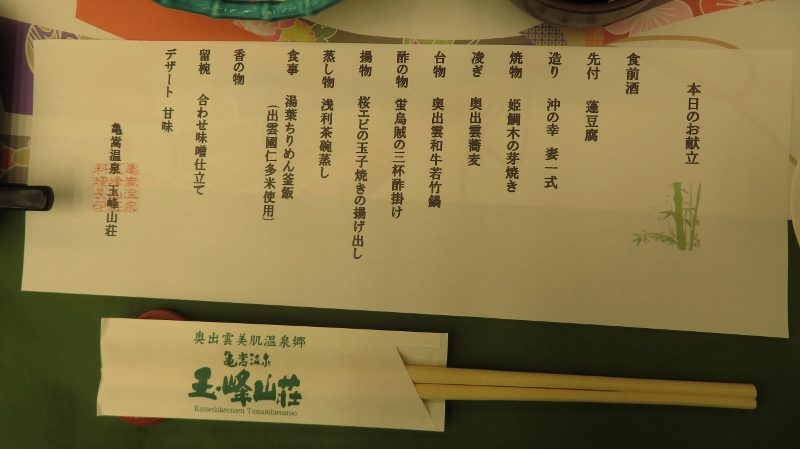 本日のお献立
食前酒
先付 蓬豆腐
造り 沖の幸 妻一式
焼物 姫鯛木の芽焼き
凌ぎ 奥出雲蕎麦
台物 奥出雲和牛若竹鍋
酢の物 蛍烏賊の三杯酢掛け
揚物 桜エビの玉子焼きの揚げ出し
蒸し物 浅利茶碗蒸し
食事 湯葉ちりめん釜飯
(出雲國仁多米使用)
香の物
留椀 合わせ味噌仕立て
デザート 甘味
亀嵩温泉 玉峰山荘
奥出雲美肌温泉郷
亀嵩温泉
玉峰山荘
Kamedakeonsen Tamaminesanso